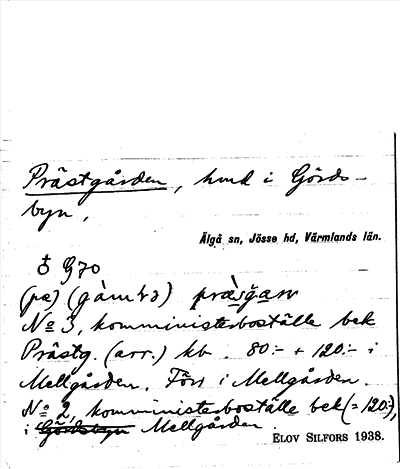 Prästgården, hmd i Görds-
byn,
Älgå sn, Jösse hd, Värmlands län.
♁ G70
(på) (gàmɫə) præ̀sgaɳ
No 3, komministerboställe bek
Prästg. (arr.) kb. 80:- + 120:- i
Mellgården. Förr i Mellgården.
No 2, komministerboställe bek (= 120:-),
i Gördsbyn Mellgården.
ELOV SILFORS 1938.